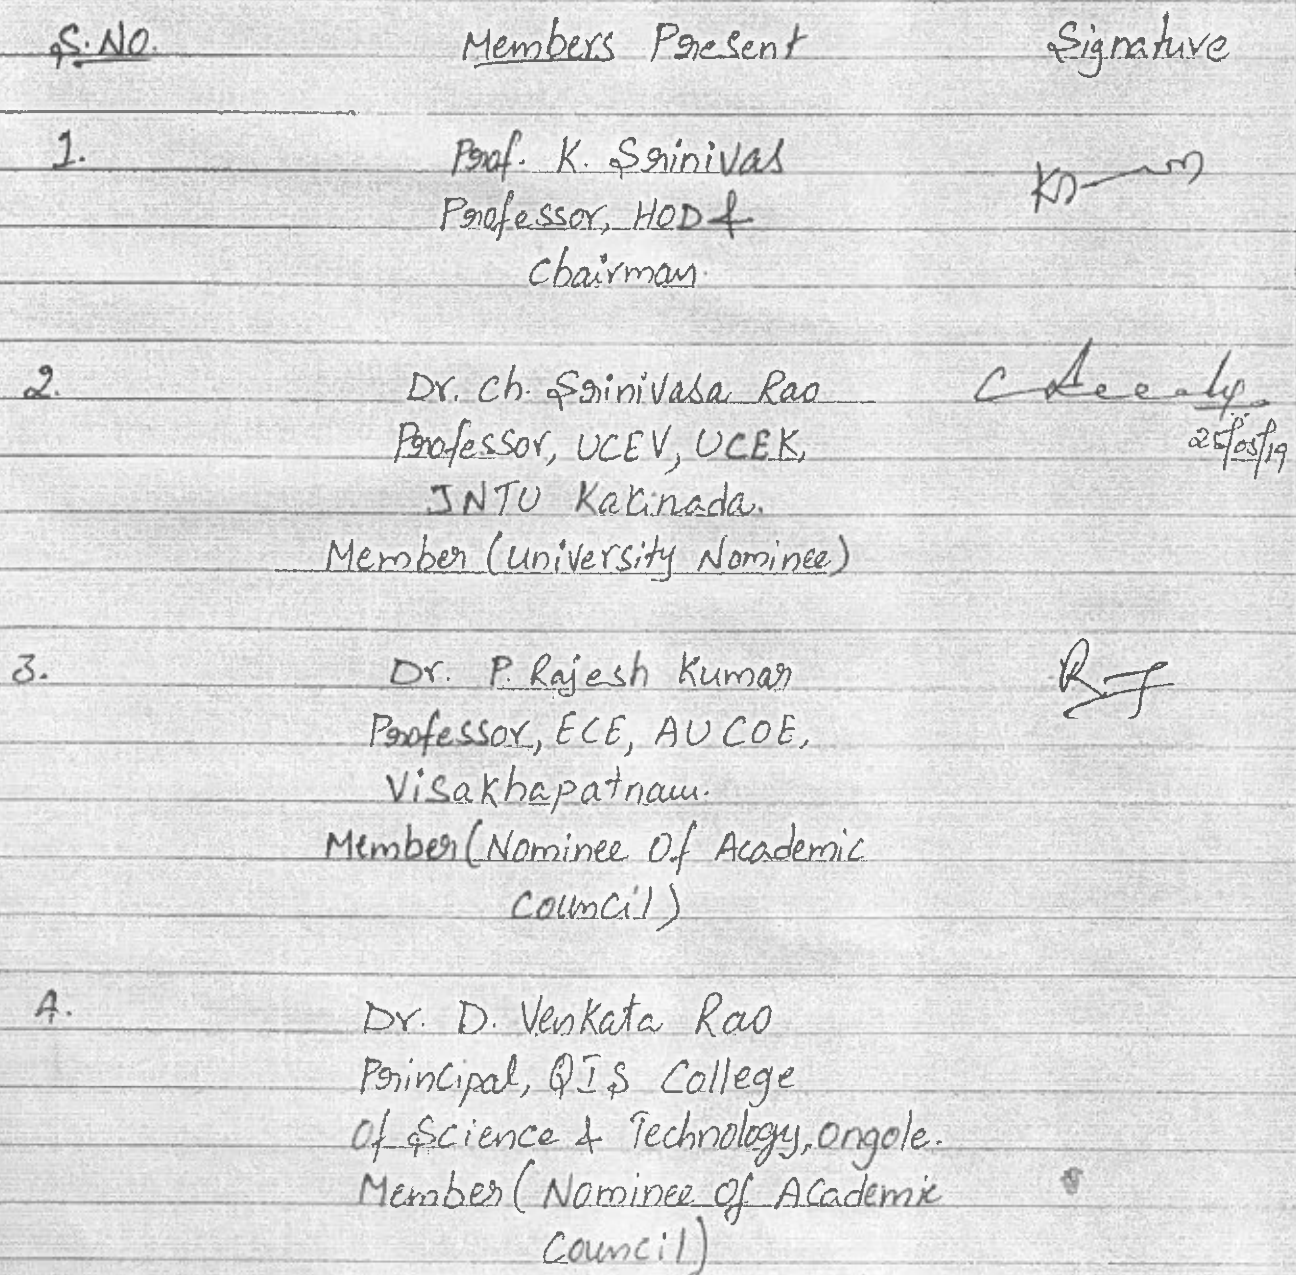 S.NO. Members Present Signature
1. Prof. K. Srinivas
Professor, HOD &
Chairman.
2. Dr. Ch. Srinivasa Rao
Professor, UCEV, UCEK, 25/05/19
JNTU Kakinada.
Member (University Nominee)
3. Dr. P. Rajesh Kumar
Professor, ECE, AUCOE,
Visakhapatnam.
Member (Nominee Of Academic
Council)
4. Dr. D. Venkata Rao
Principal, QIS College
Of Science & Technology, Ongole.
Member (Nominee of Academic
Council)